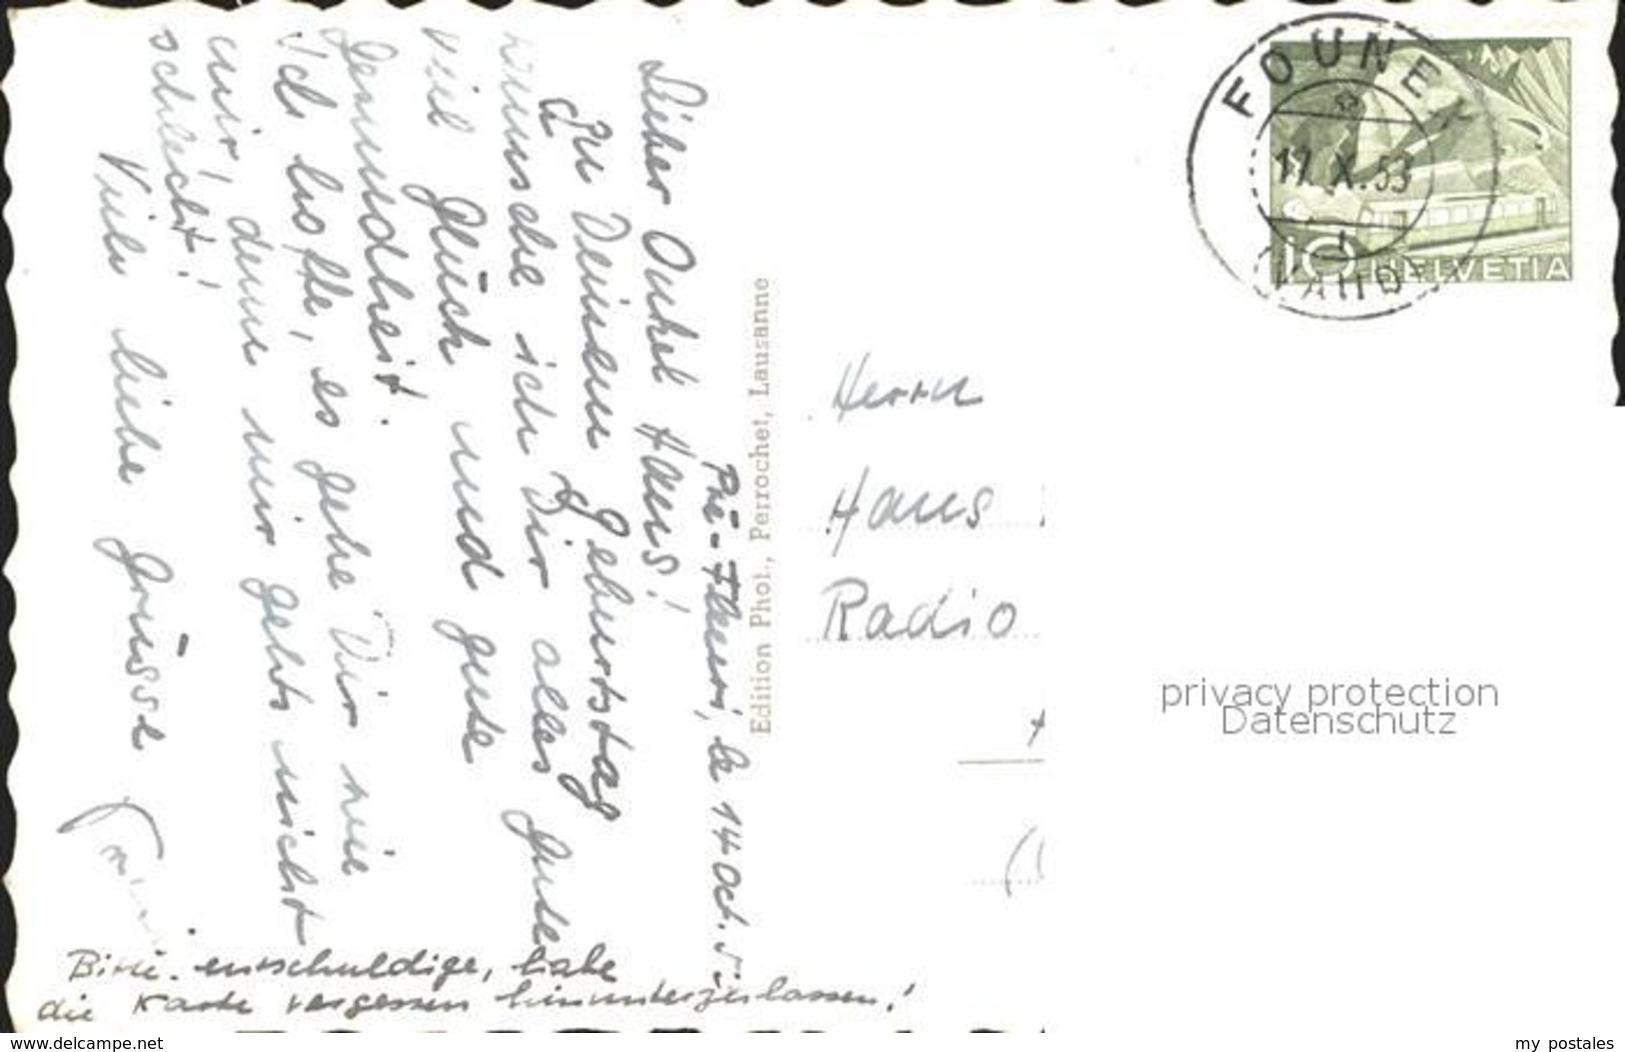 Pré-Fleuri, le 14 Oct. 5
Lieber Onkel Hans!
Zu Deinem Geburtstag
wünsche ich Dir alles gute
viel Glück und gute
Gesundheit.
Ich hoffe, es gehe Dir wie
mir, denn mir gehts nicht
schlecht!
Viele liebe Grüsse
Bitte entschuldige, habe
die Karte vergessen hinunterzulassen!
Edition Phot., Perrochet, Lausanne
FOUNEX
17.X.53
VAUD
10 HELVETIA
Herrn
Hans
Radio
privacy protection
Datenschutz
www.delcampe.net
my_postales